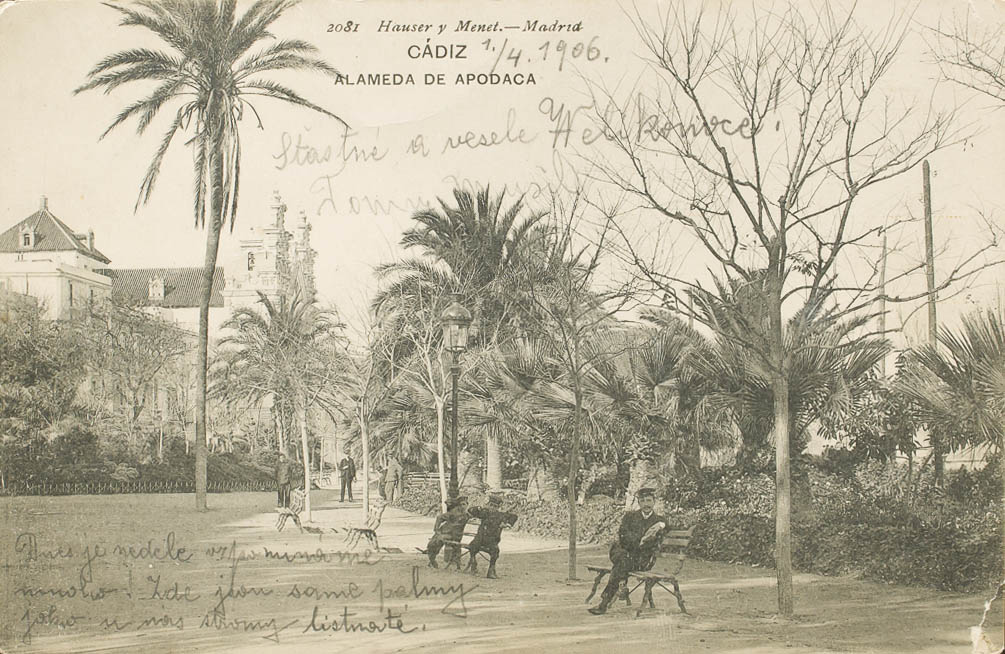 2081 Hauser y Menet.—Madrid
CÁDIZ 1./4. 1906.
ALAMEDA DE APODACA
Štástné a vesele Velikonoce!
Dnes je nedele vzpominame
mnoho! Zde jsou same palmy
jako u nás stromy listnaté.